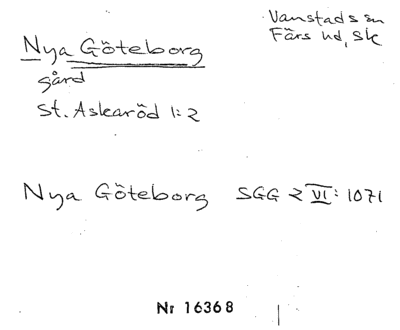 Vanstads sn
Färs hd, Sk
Nya Göteborg
gård
St. Askaröd 1:2
Nya Göteborg SGG 2 VI: 1071
Nr 16368